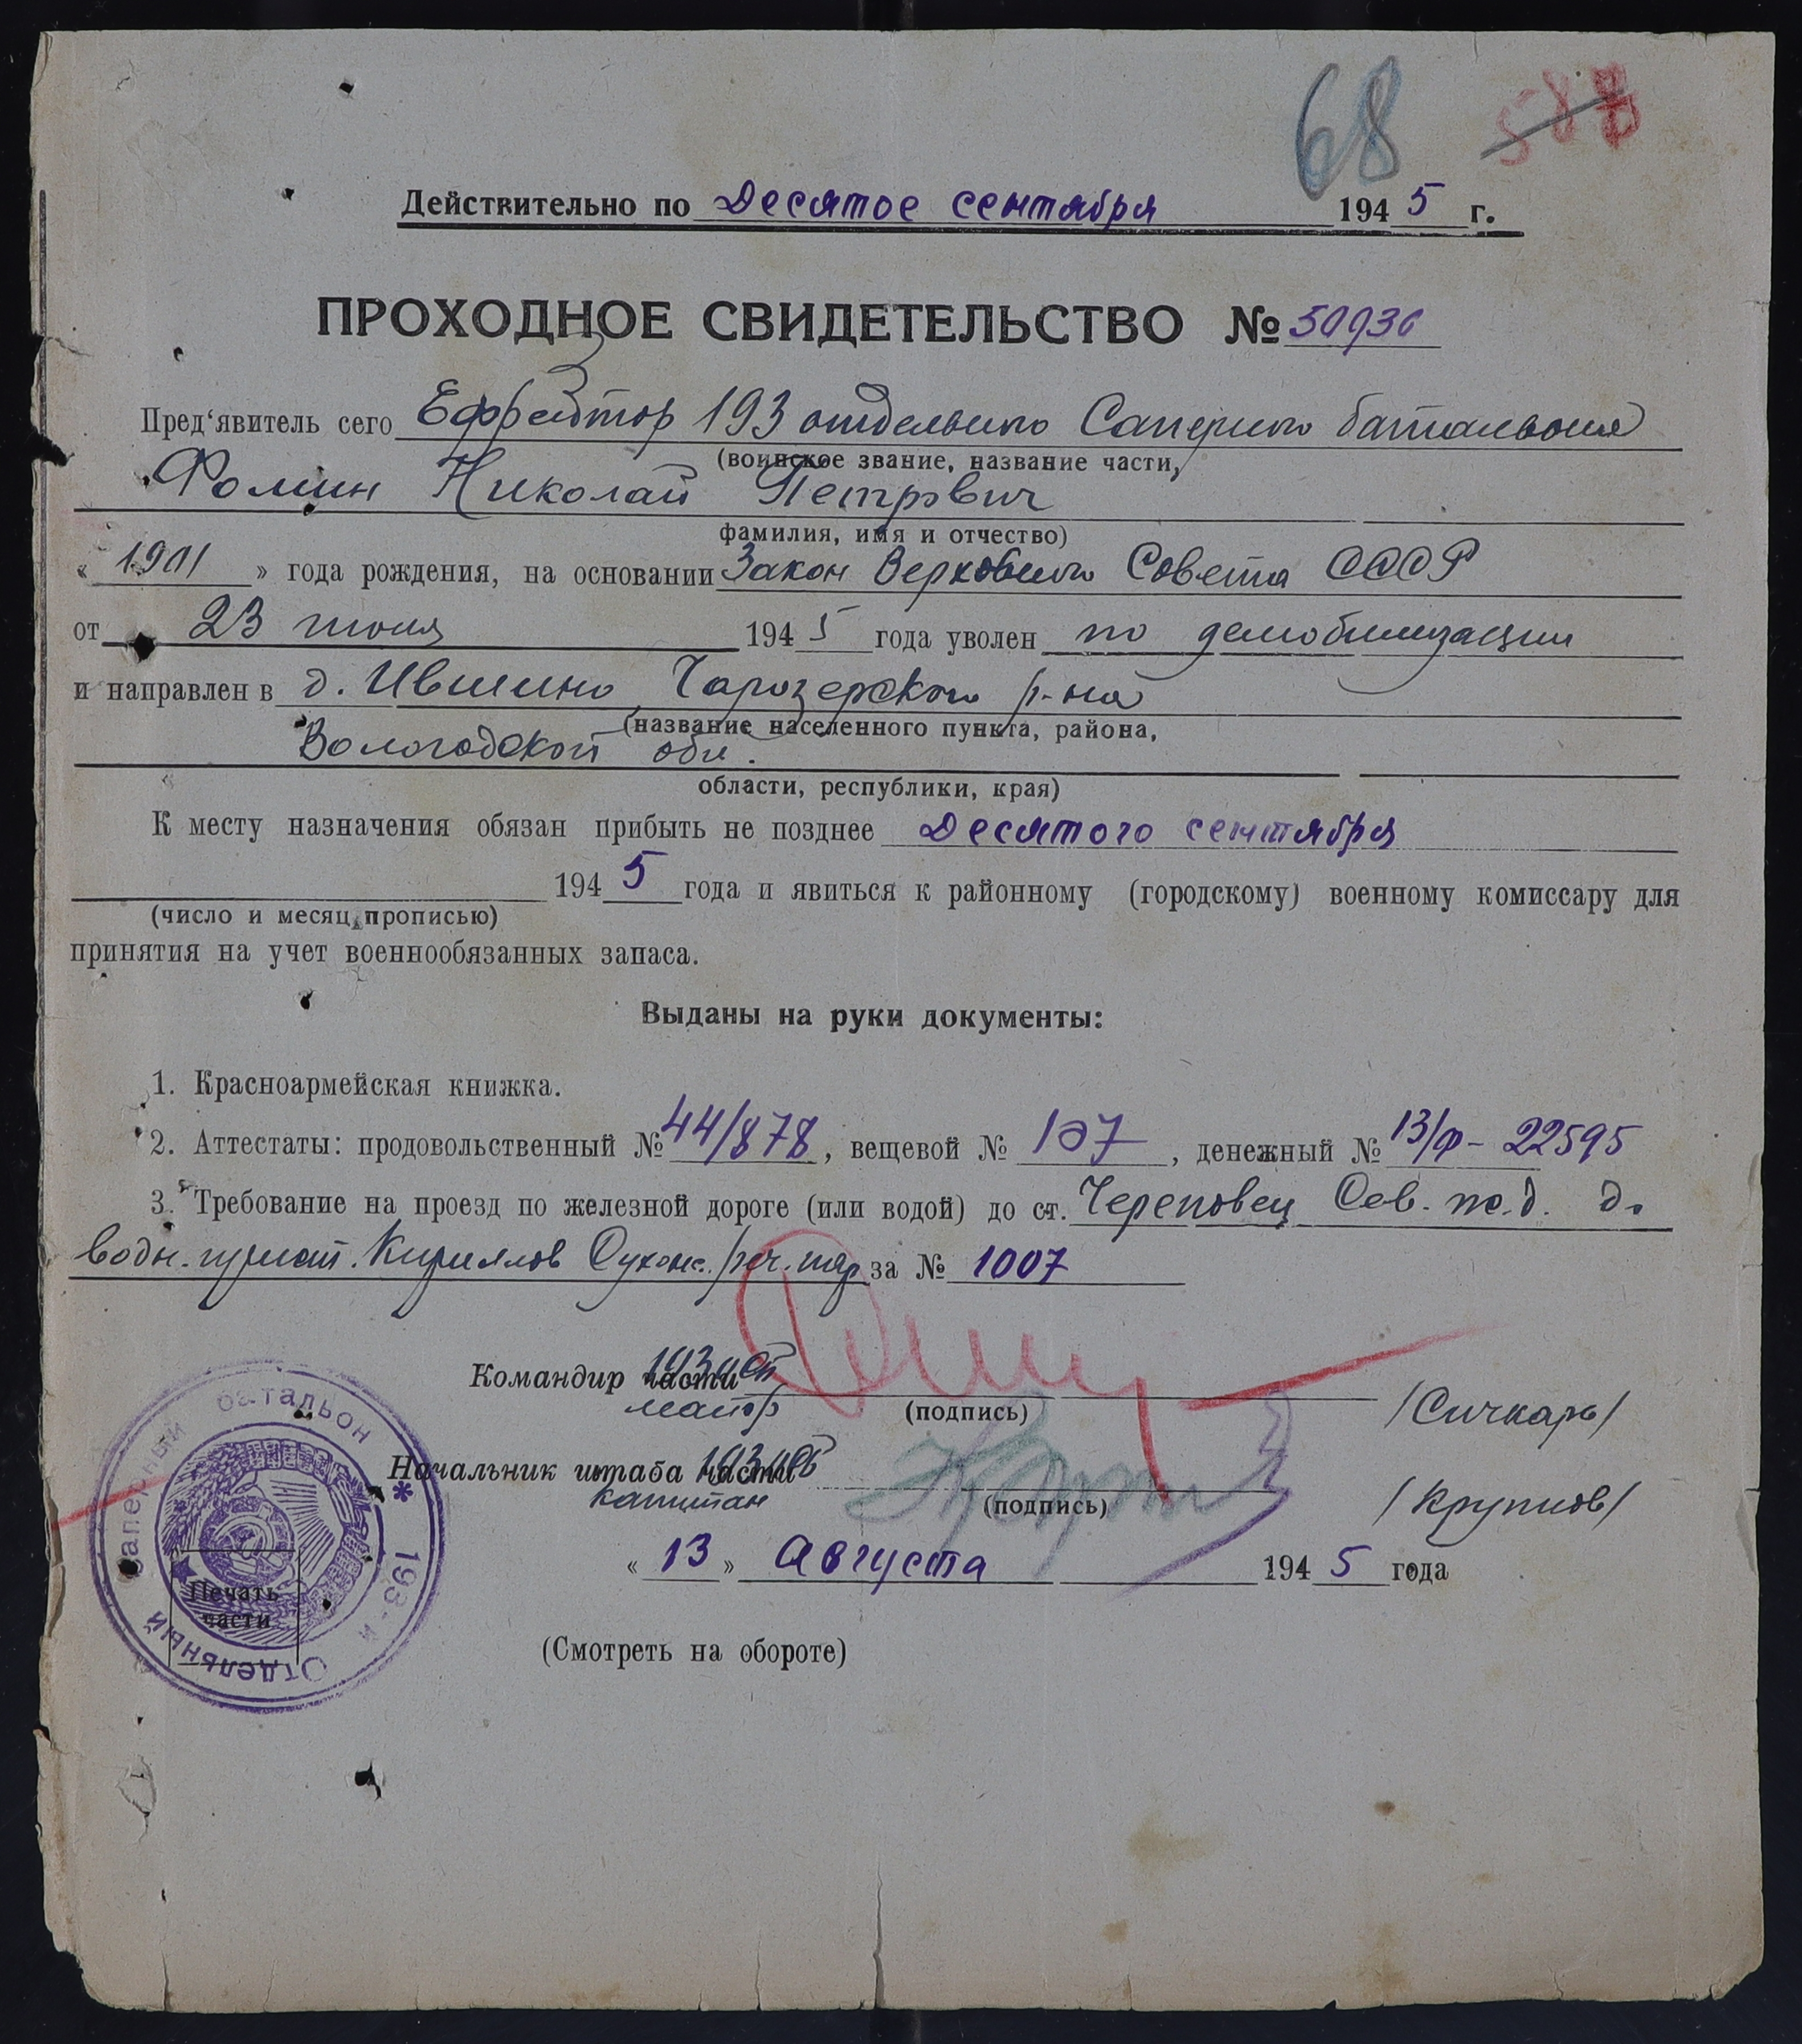 68 588
Действительно по Десятое сентября 1945 г.
ПРОХОДНОЕ СВИДЕТЕЛЬСТВО № 50936
Пред‘явитель сего Ефрейтор 193 отдельного Саперного батальона
(воинское звание, название части,
Фомин Николай Петрович
фамилия, имя и отчество)
« 1901 » года рождения, на основании Закон Верховного Совета СССР
от 23 июня 1945 года уволен по демобилизации
и направлен в д. Ившино Чарозерского р-на
(название населенного пункта, района,
Вологодской обл.
области, республики, края)
К месту назначения обязан прибыть не позднее Десятого сентября
1945 года и явиться к районному (городскому) военному комиссару для
(число и месяц прописью)
принятия на учет военнообязанных запаса.
Выданы на руки документы:
1. Красноармейская книжка.
2. Аттестаты: продовольственный № 44/878, вещевой № 107, денежный № 13/ф-22595
3. Требование на проезд по железной дороге (или водой) до ст. Череповец Сев. ж.д. до
водн. Кириллов Сухонс. реч. за № 1007
Командир части
майор (подпись) /Сичкарь/
Начальник штаба части
капитан (подпись) /Крупнов/
« 13 » Августа 1945 года
Отдельный саперный батальон * 193-й
Печать
части
(Смотреть на обороте)